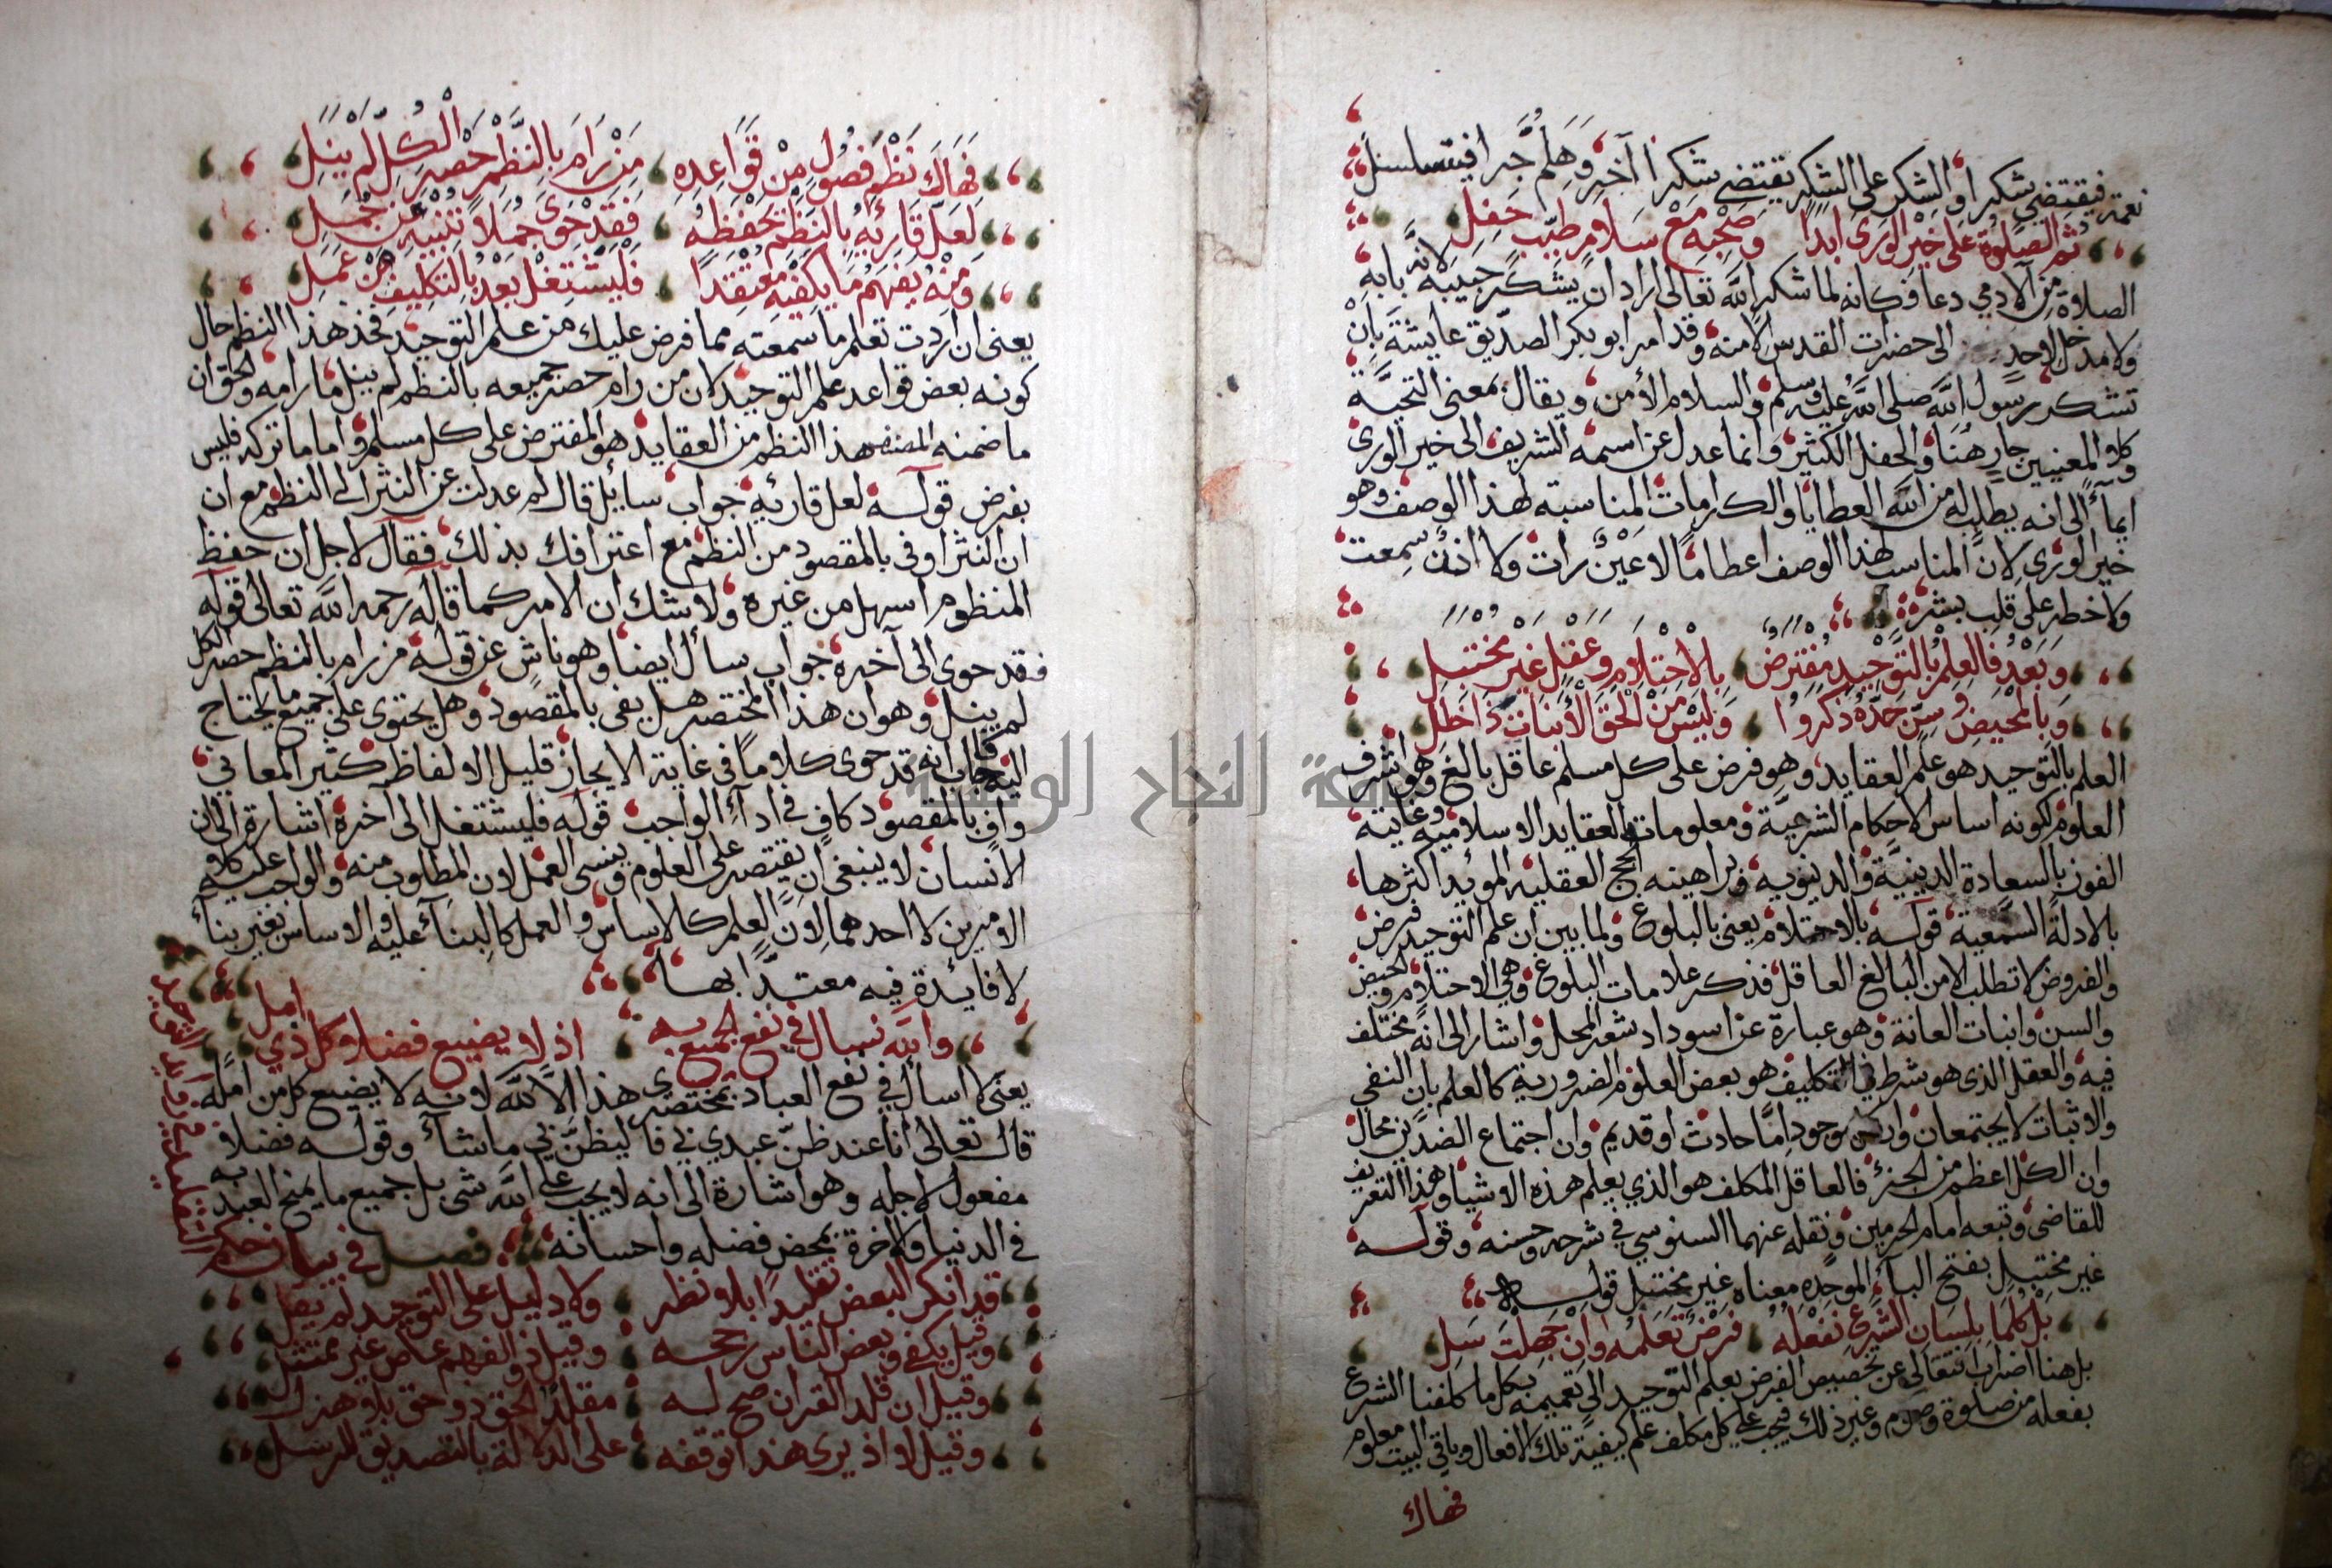 نعمة فيقتضي شكرا والشكر على الشكر يقتضي شكرا آخر وهلم جرا فيتسلسل
ثم الصلوة على خير الورى ابدا وصحبه مع سلام طيب حفل
الصلاة من الآدمي دعا فكانه لما شكر الله تعالى اراد ان يشكر حبيبه لانه بابه
ولا مدخل لاحد الى حضرات القدس الا منه وقد امر ابو بكر الصديق عايشة بان
تشكر رسول الله صلى الله عليه وسلم والسلام الأمن ويقال بمعنى التحية
وكلا المعنيين جار هنا والحفل الكثير وانما عدل عن اسمه الشريف الى خير الورى
ايماء الى انه يطلب له من الله العطايا والكرامات المناسبة لهذا الوصف وهو
خير الورى لان المناسب لهذا الوصف اعطا ما لا عين رات ولا اذن سمعت
ولا خطر على قلب بشر
وبعد فالعلم بالتوحيد مفترض بالاحتلام وعقل غير مختبل
وبالمحيض وسن حده ذكروا وليس من الحق الأنبات ذا خطل
العلم بالتوحيد هو علم العقايد وهو فرض على كل مسلم عاقل بالغ وهو اشرف
العلوم لكونه اساس الاحكام الشرعية ومعلومات العقايد الاسلامية وغايته
الفوز بالسعادة الدينية والدنيوية وبراهينه الحجج العقلية المؤيد اكثرها
بالادلة السمعية قوله بالاحتلام يعني بالبلوغ ولما بين ان علم التوحيد فرض
والفروض لا تطلب الا من البالغ العاقل فذكر علامات البلوغ وهي الاحتلام والحيض
والسن وانبات العانة وهو عبارة عن اسوداد شعر المحل واشار الى انه مختلف
فيه والعقل الذي هو شرط في التكليف هو بعض العلوم الضرورية كالعلم بان النفي
والاثبات لا يجتمعان وان كل موجود اما حادث او قديم وان اجتماع الضدين محال
وان الكل اعظم من الجزء فالعاقل المكلف هو الذي يعلم هذه الاشيا وهذا التعريف
للقاضي وتبعه امام الحرمين ونقله عنهما السنوسي في شرحه وحسنه وقوله
غير مختبل بفتح الباء الموحده معناه غير مختبل قوله
بل كلما بلسان الشرع نفعله فرض تعلمه وان جهلت سل
بل هنا اضراب انتقالي عن تخصيص الفرض بعلم التوحيد الى تعميمه بكل ما كلفنا الشرع
بفعله من صلوة وصوم وغير ذلك فيجب على كل مكلف علم كيفية تلك الافعال وباقي البيت معلوم
فهاك
فهاك نظم فصول من قواعده من رام بالنظم حصر الكل لم ينل
لعل قارئه بالنظم يحفظه فقد حوى جملا تنبيه عن جمل
ومنه يفهم ما يكفيه معتقدا فليشتغل بعد بالتكليف من عمل
يعني ان اردت تعلم ما سمعته مما فرض عليك من علم التوحيد فخذ هذا النظم حال
كونه بعض قواعد علم التوحيد لان من رام حصر جميعه بالنظم لم ينل ما رامه والحق ان
ما ضمنه المصنف هذا النظم من العقايد هو المفترض على كل مسلم واما ما تركه فليس
بفرض قوله لعل قارئه جواب سايل قال لم عدلت عن النثر الى النظم مع ان
ان النثر اوفى بالمقصود من النظم مع اعترافك بذلك فقال لاجل ان حفظ
المنظوم اسهل من غيره ولا شك ان الامر كما قاله رحمه الله تعالى قوله
فقد حوى الى آخره جواب سأل ايضا وهو ناش عن قوله من رام بالنظم حصر الكل
لم ينل وهو ان هذا المختصر هل يفي بالمقصود وهل يحتوي على جميع ما يحتاج
اليه فاجاب انه قد حوى كلاما في غاية الايجاز قليل الالفاظ كثير المعاني
واف بالمقصود كاف في اداء الواجب قوله فليشتغل الى آخره اشارة الى ان
الانسان لا ينبغي ان يقتصر على العلوم وينسى العمل لان المطلوب منه والواجب عليه كلا
الامرين لا احدهما لان العلم كالاساس والعمل كالبناء عليه والاساس بغير بناء
لا فايدة فيه معتدا بها
والله نسال في نفع الجميع به اذ لا يضيع فضلا كل ذي امل
يعني لا اسأل في نفع العباد بمختصري هذا الا الله لانه لا يضيع كل من امله
قال تعالى انا عند ظن عبدي بي فاليظن بي ما شاء وقوله فضلا
مفعول لاجله وهو اشارة الى انه لا يجب على الله شي بل جميع ما يمنح العبد به
في الدنيا والاخرة بمحض فضله واحسانه فصل في بيان حكم
التقليد في عقايد التوحيد
قد انكر البعض تقليدا بلا نظر ولا دليل على التوحيد لم يقل
وقيل يكفي وبعض الناس رجحه وقيل ذو الفهم عاص غير ممتثل
وقيل ان قلد القران صح له مقلد الحق ذو حق بلا هزل
وقيل لا اذ يرى هذا توقفه على الدلالة بالتصديق للرسل
جامعة النجاح الوطنية